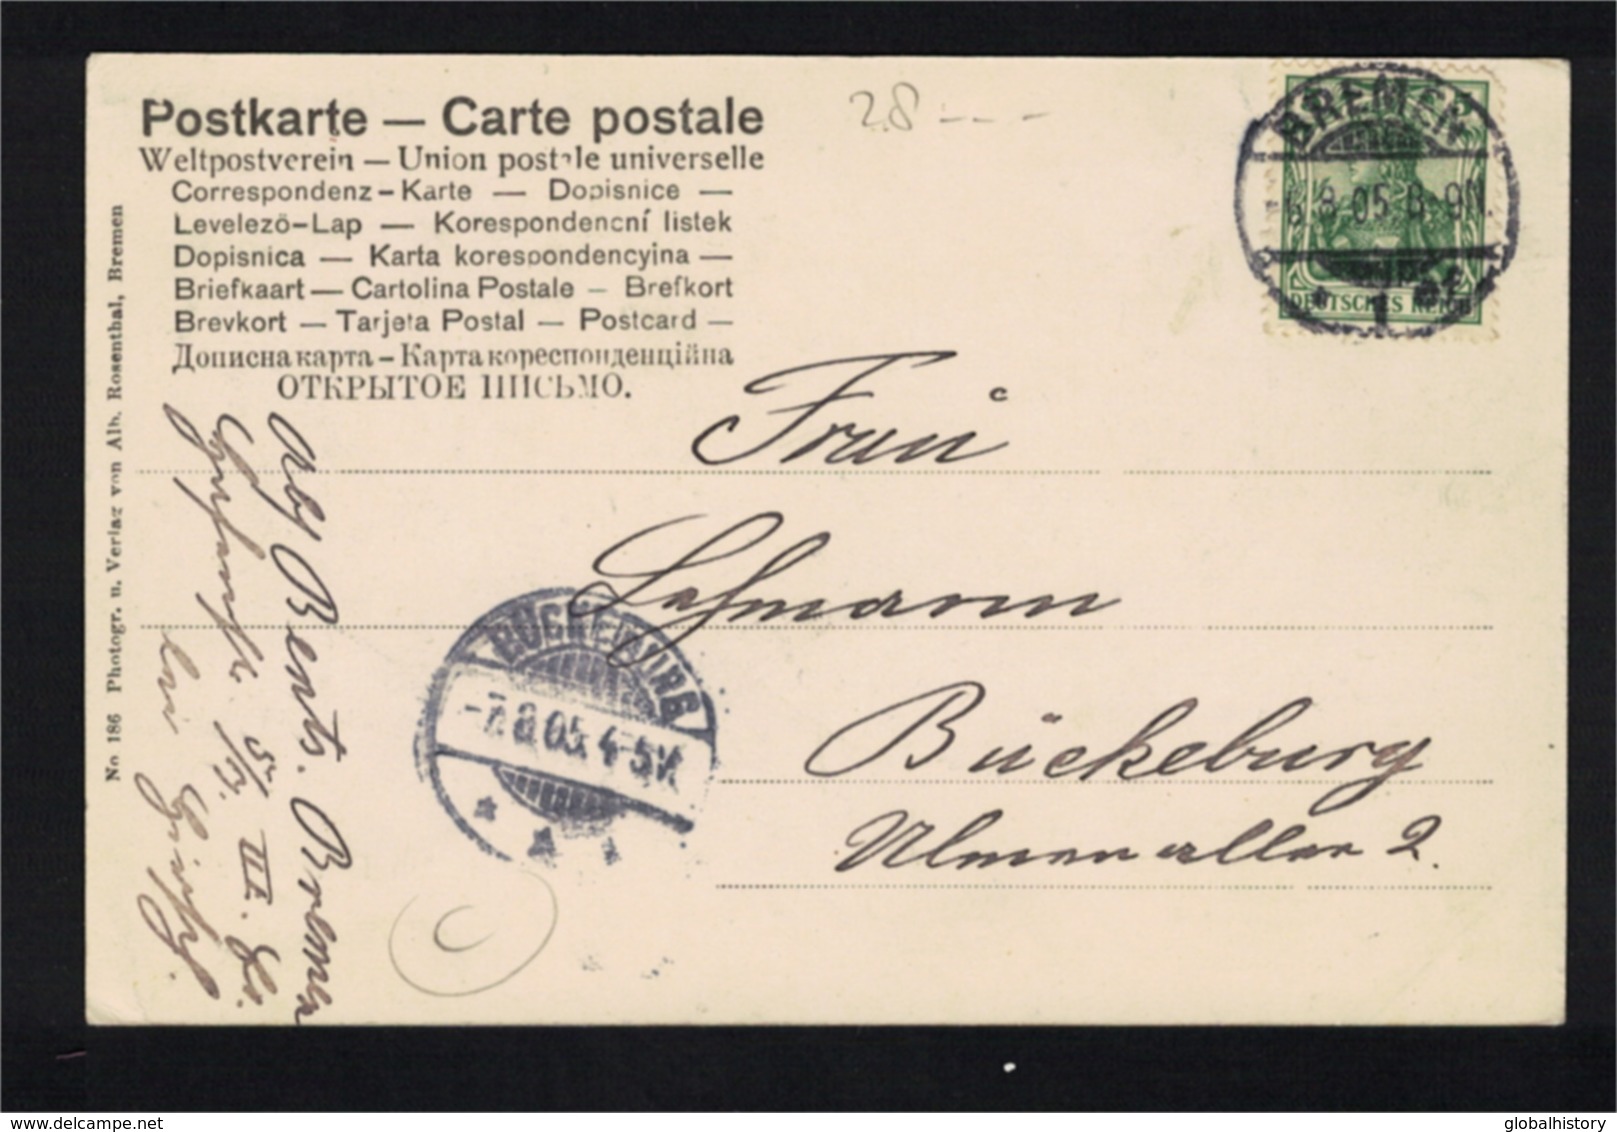 Postkarte — Carte postale
Weltpostverein — Union postale universelle
Correspondenz-Karte — Dopisnice —
Levelezö-Lap — Korespondencní listek
Dopisnica — Karta korespondencyina —
Briefkaart — Cartolina Postale — Brefkort
Brevkort — Tarjeta Postal — Postcard —
Дописна карта – Карта кореспонденційна
ОТКРЫТОЕ ПИСЬМО.
28 — — —
BREMEN
8.05.8-9N.
DEUTSCHES REICH
Frau
Lehmann
Bückeburg
Ulmenallee 2.
BÜCKEBURG
-7.8.05.4-5V.
No 186 Photogr. u. Verlag von Alb. Rosenthal, Bremen
Abs Bents. Bremen
III.
delcampe.net
globalhistory